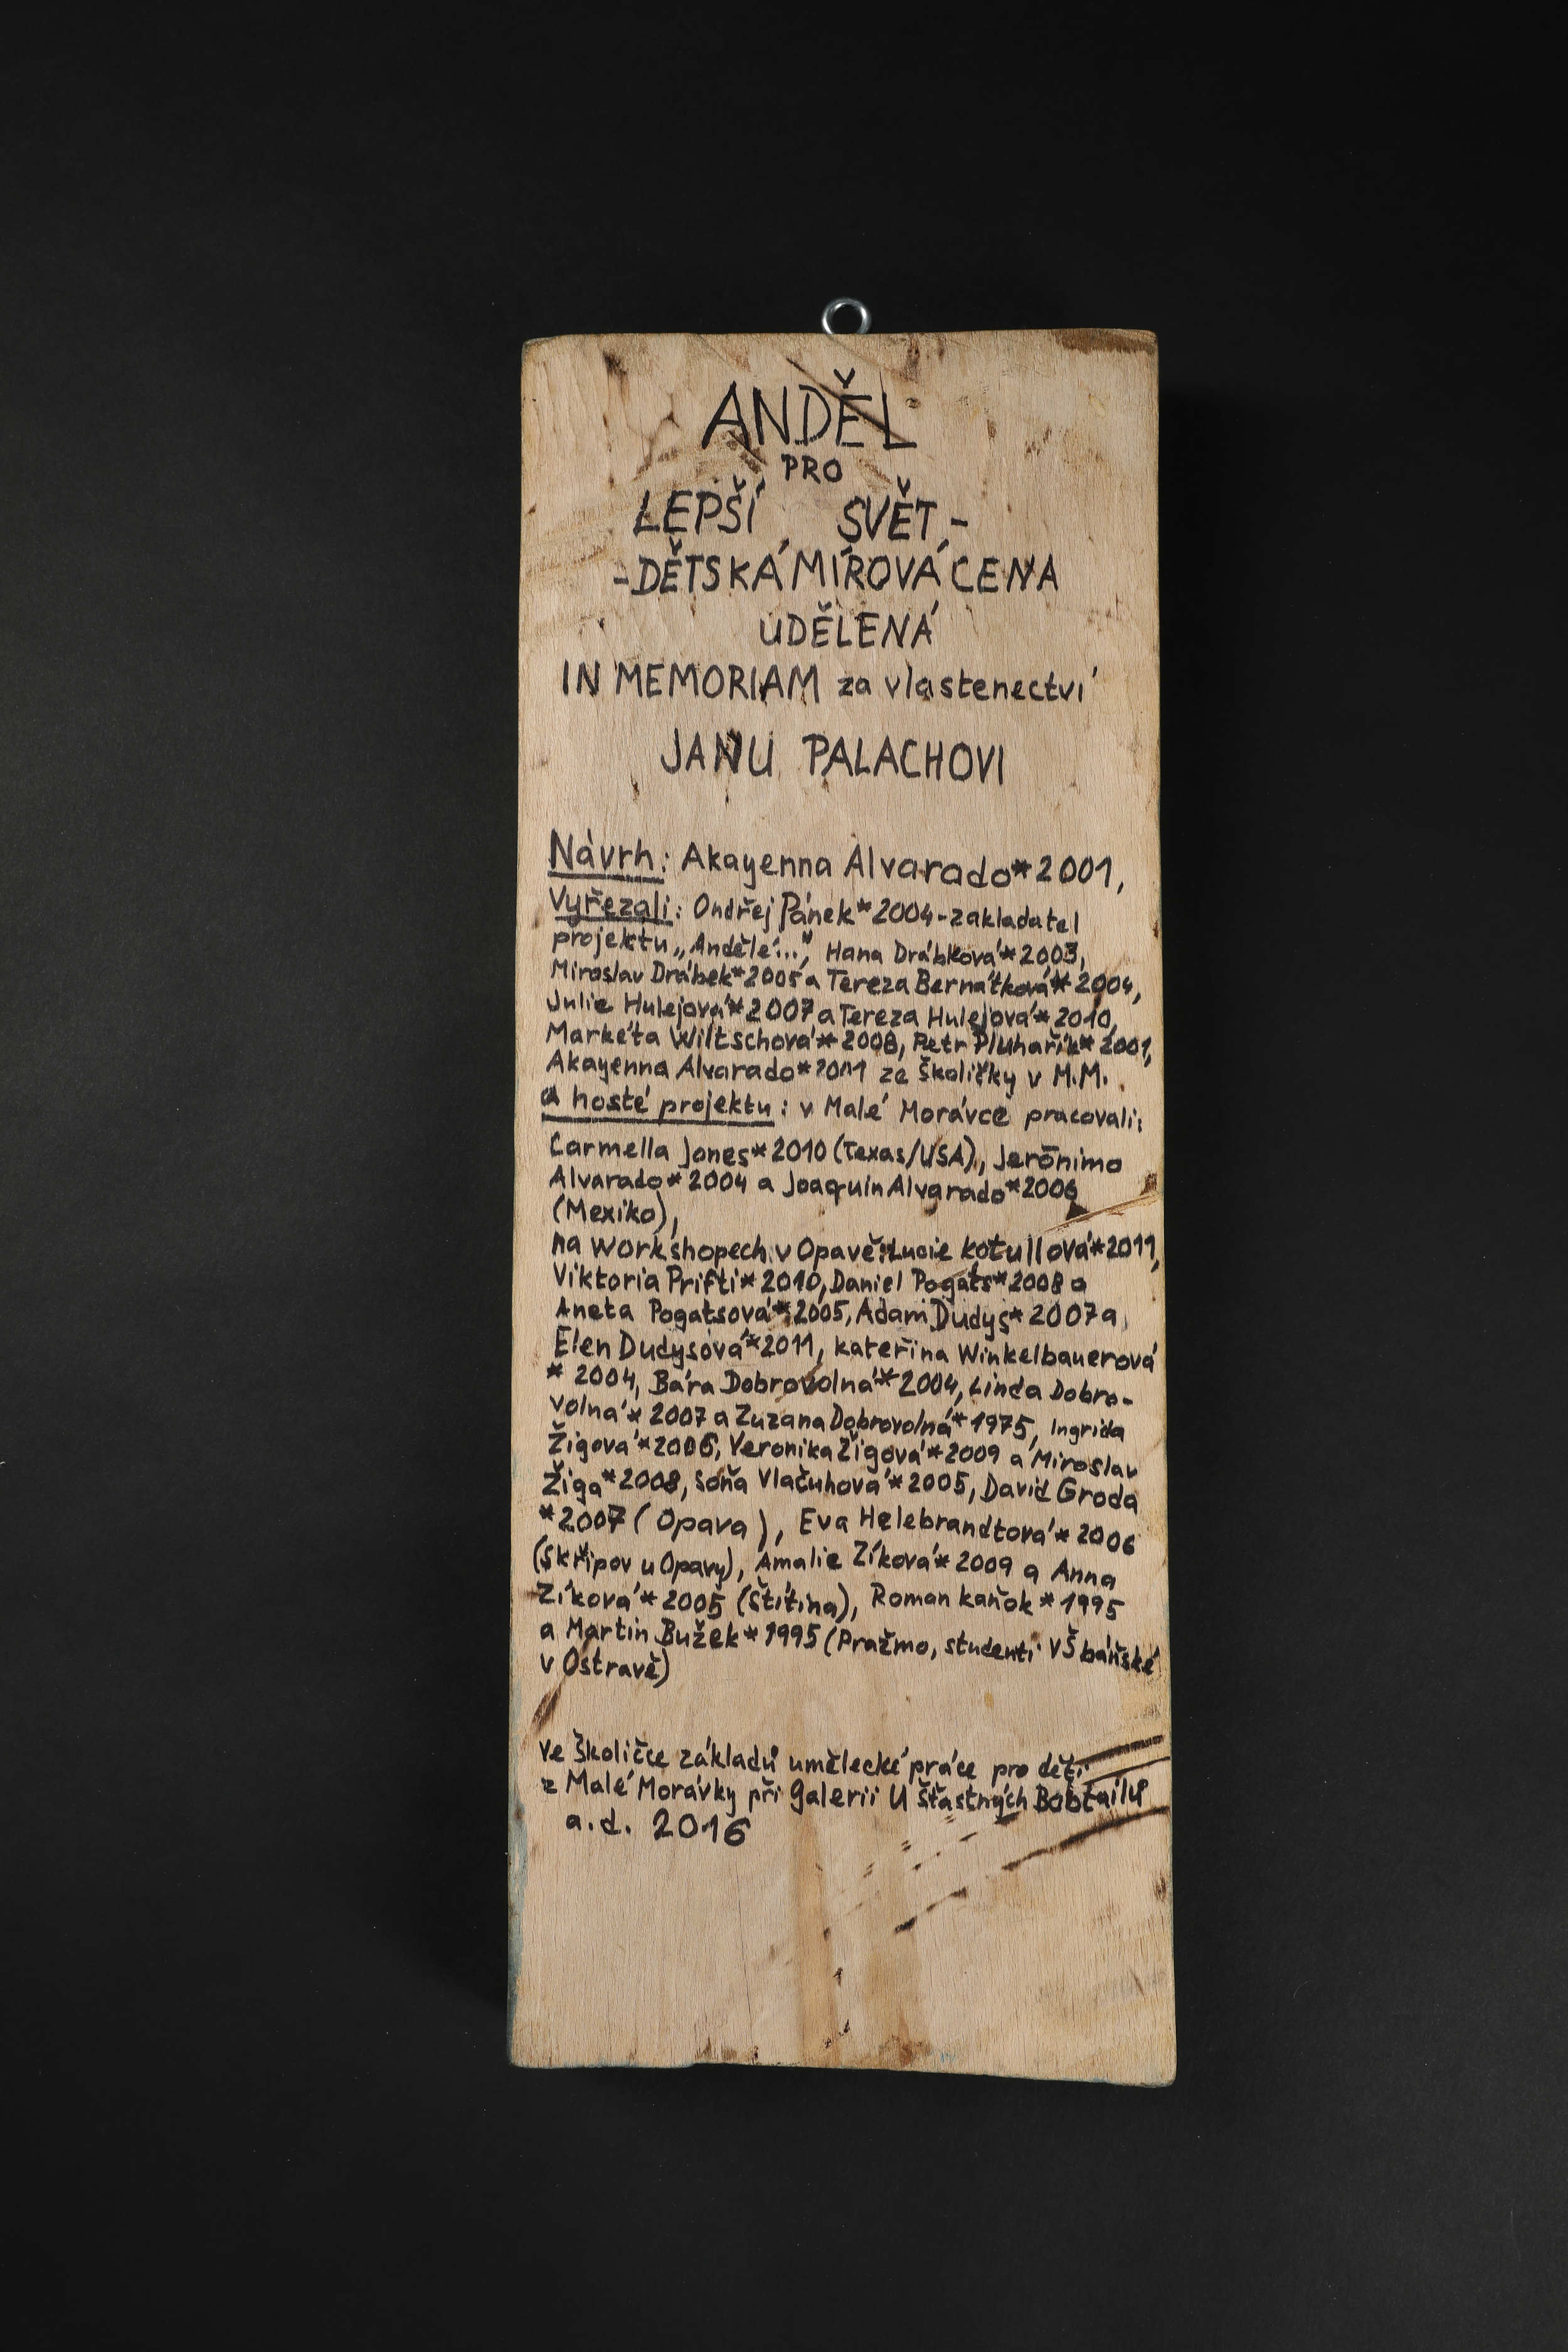 ANDĚL
PRO
LEPŠÍ SVĚT,-
-DĚTSKÁ MÍROVÁ CENA
UDĚLENÁ
IN MEMORIAM za vlastenectví
JANU PALACHOVI
Návrh: Akayenna Alvarado*2001,
Vyřezali: Ondřej Pánek*2004-zakladatel
projektu „Andělé...", Hana Drábková*2003,
Miroslav Drábek*2005 a Tereza Bernátková*2004,
Julie Hulejová*2007 a Tereza Hulejová*2010,
Markéta Wiltschová*2008, Petr Pluhařík*2001,
Akayenna Alvarado*2001 ze školičky v M.M.
a hosté projektu: v Malé Morávce pracovali:
Carmella Jones*2010 (Texas/USA), Jerónimo
Alvarado*2004 a Joaquín Alvarado*2006
(Mexiko),
na workshopech v Opavě: Lucie Kotullová*2011,
Viktoria Prifti*2010, Daniel Pogats*2008 a
Aneta Pogatsová*2005, Adam Dudys*2007 a
Elen Dudysová*2011, Kateřina Winkelbauerová
*2004, Bára Dobrovolná*2004, Linda Dobro-
volná*2007 a Zuzana Dobrovolná*1975, Ingrida
Žigová*2006, Veronika Žigová*2009 a Miroslav
Žiga*2008, Soňa Vlačuhová*2005, David Groda
*2007 (Opava), Eva Helebrandtová*2006
(Skřipov u Opavy), Amalie Zíková*2009 a Anna
Zíková*2005 (Štítina), Roman Kaňok*1995
a Martin Bužek*1995 (Pražmo, studenti VŠ báňské
v Ostravě)
ve školičce základů umělecké práce pro děti
z Malé Morávky při galerii U šťastných Bobtailů
a.d. 2016